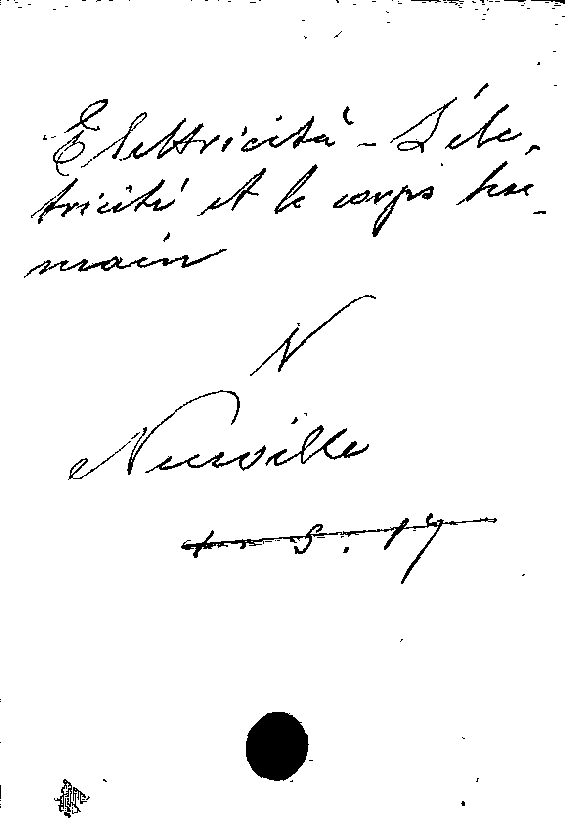 Elettricità - L'élec-
tricité et le corps hu-
main
N
Neuville
5. 17